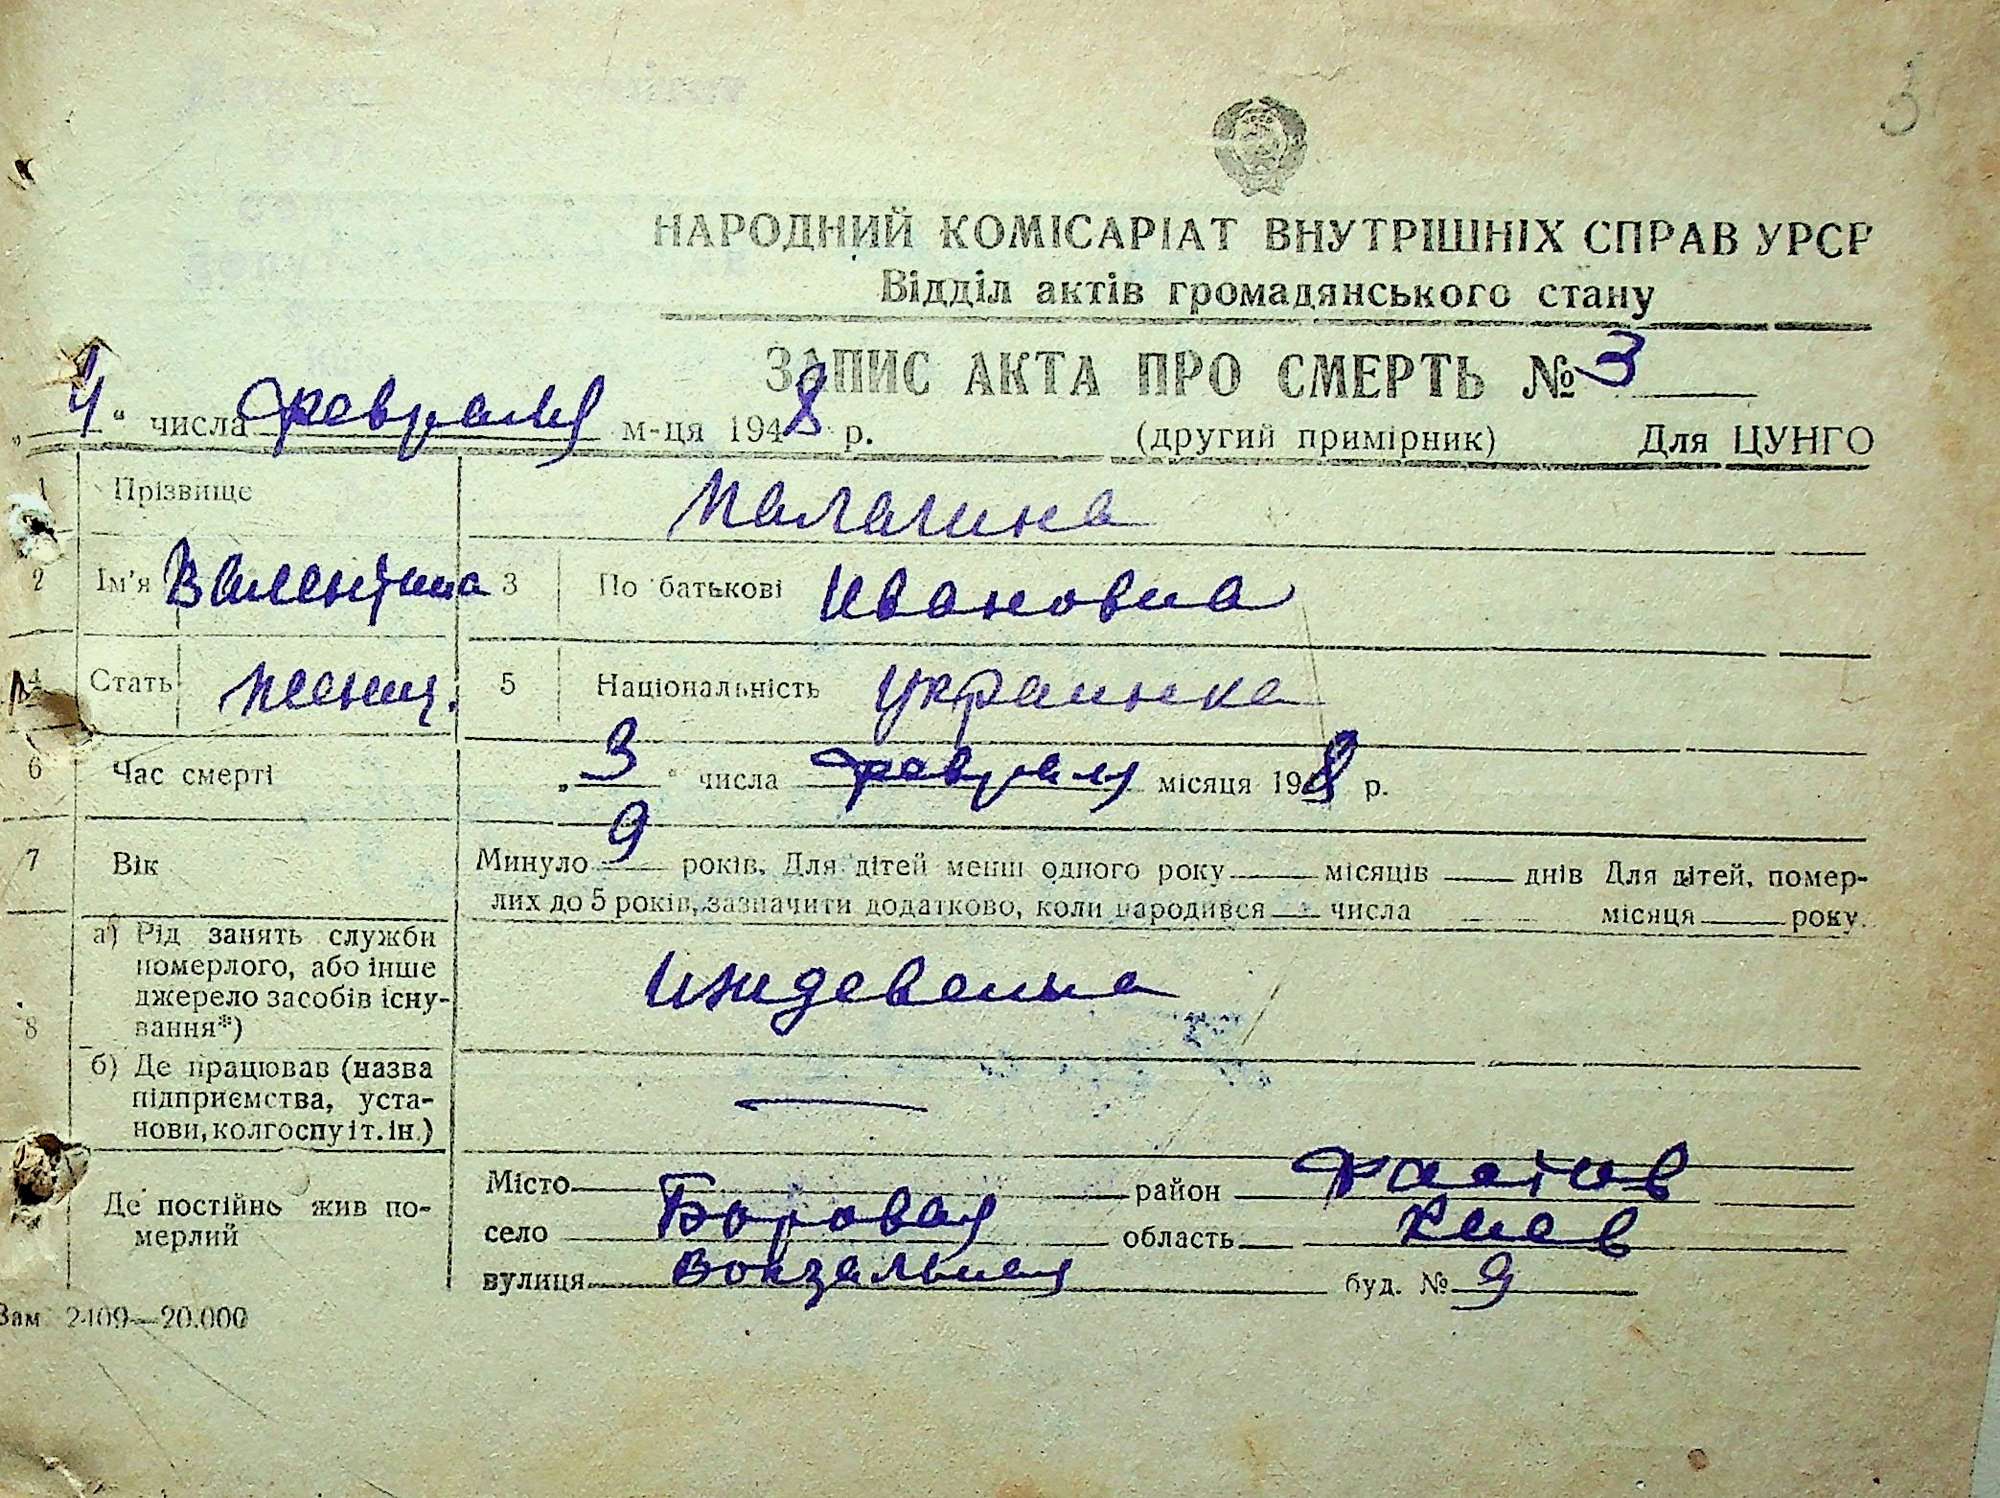 3
НАРОДНИЙ КОМІСАРІАТ ВНУТРІШНІХ СПРАВ УРСР
Відділ актів громадянського стану
ЗАПИС АКТА ПРО СМЕРТЬ № 3
„ 4 “ числа февраля м-ця 1948 р. (другий примірник) Для ЦУНГО
1 Прізвище Палагина
2 Ім'я Валентина 3 По батькові Ивановна
4 Стать женщ. 5 Національність украинка
6 Час смерті „ 3 “ числа февраля місяця 198 р.
7 Вік Минуло 9 років. Для дітей менш одного року місяців днів Для дітей, помер-
лих до 5 років, зазначити додатково, коли народився числа місяця року.
8 а) Рід занять служби
померлого, або інше
джерело засобів існу-
вання*) Иждевенка
б) Де працював (назва
підприємства, уста-
нови, колгоспу і т. ін.) —
Де постійно жив по-
мерлий
Місто район Фастов
село Боровая область Киев
вулиця Вокзальная буд. № 9
Зам 2409—20.000